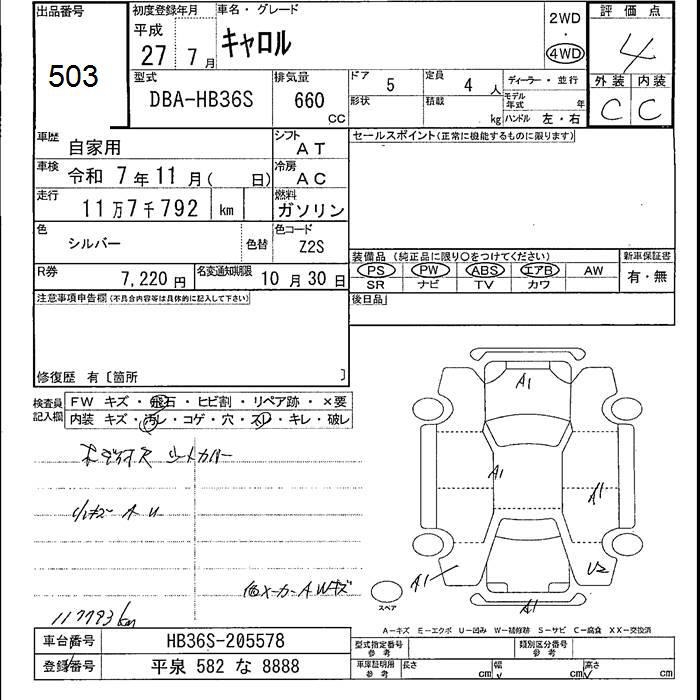 出品番号
503
初度登録年月
平成
27 7月
車名・グレード
キャロル
2WD
・
4WD
評価点
4
外装 内装
C C
型式
DBA-HB36S
排気量
660
CC
ドア 5
定員 4人
ディーラー・並行
形状
積載 kg
モデル年式 年
ハンドル 左・右
車歴 自家用
シフト AT
セールスポイント(正常に機能するものに限ります)
車検 令和 7年11月( 日)
冷房 AC
走行 11万7千792 km
燃料 ガソリン
色 シルバー
色替
色コード Z2S
装備品 (純正品に限り○をつけてください)
新車保証書
PS PW ABS エアB AW
有・無
SR ナビ TV カワ
R券 7,220円
名変通知期限 10月30日
後日品
注意事項申告欄(不具合内容等は具体的に記入して下さい)
修復歴 有〔箇所 〕
検査員記入欄
FW キズ・飛石・ヒビ割・リペア跡・×要
内装 キズ・汚レ・コゲ・穴・スレ・キレ・破レ
シートカバー
小キズ A U
117793km
A1
A1
A1
A1
U2
A1
スペア
A-キズ E-エクボ U-凹み W-補修跡 S-サビ C-腐食 XX-交換済
車台番号 HB36S-205578
登録番号 平泉 582 な 8888
型式指定番号 参考
類別区分番号 参考
車庫証明用 参考
長さ cm
幅 cm
高さ cm